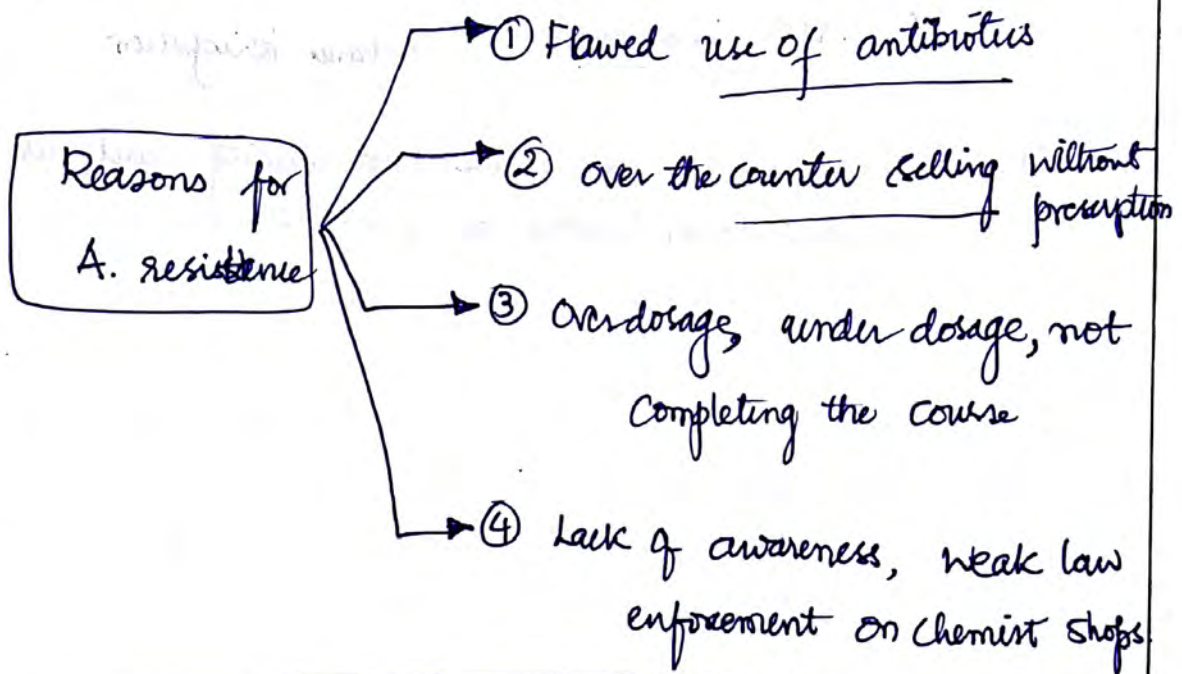 ① Flawed use of antibiotics
Reasons for
A. resistence
② over the counter selling without
prescription
③ Overdosage, under dosage, not
completing the course
④ Lack of awareness, weak law
enforcement on chemist shops.